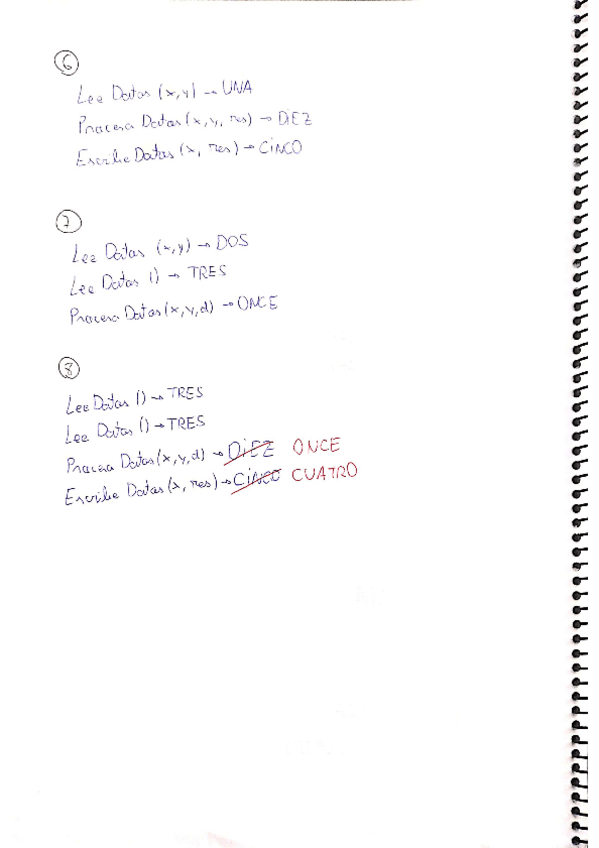 6
Lee Datos (x,y) → UNA
Procesa Datos (x, y, res) → DiEZ
Escribe Datos (x, res) → CiNCO
7
Lee Datos (x,y) → DOS
Lee Datos () → TRES
Procesa Datos (x,y,d) → ONCE
8
Lee Datos () → TRES
Lee Datos () → TRES
Procesa Datos (x,y,d) → DiEZ ONCE
Escribe Datos (x, res) → CiNCO CUATRO